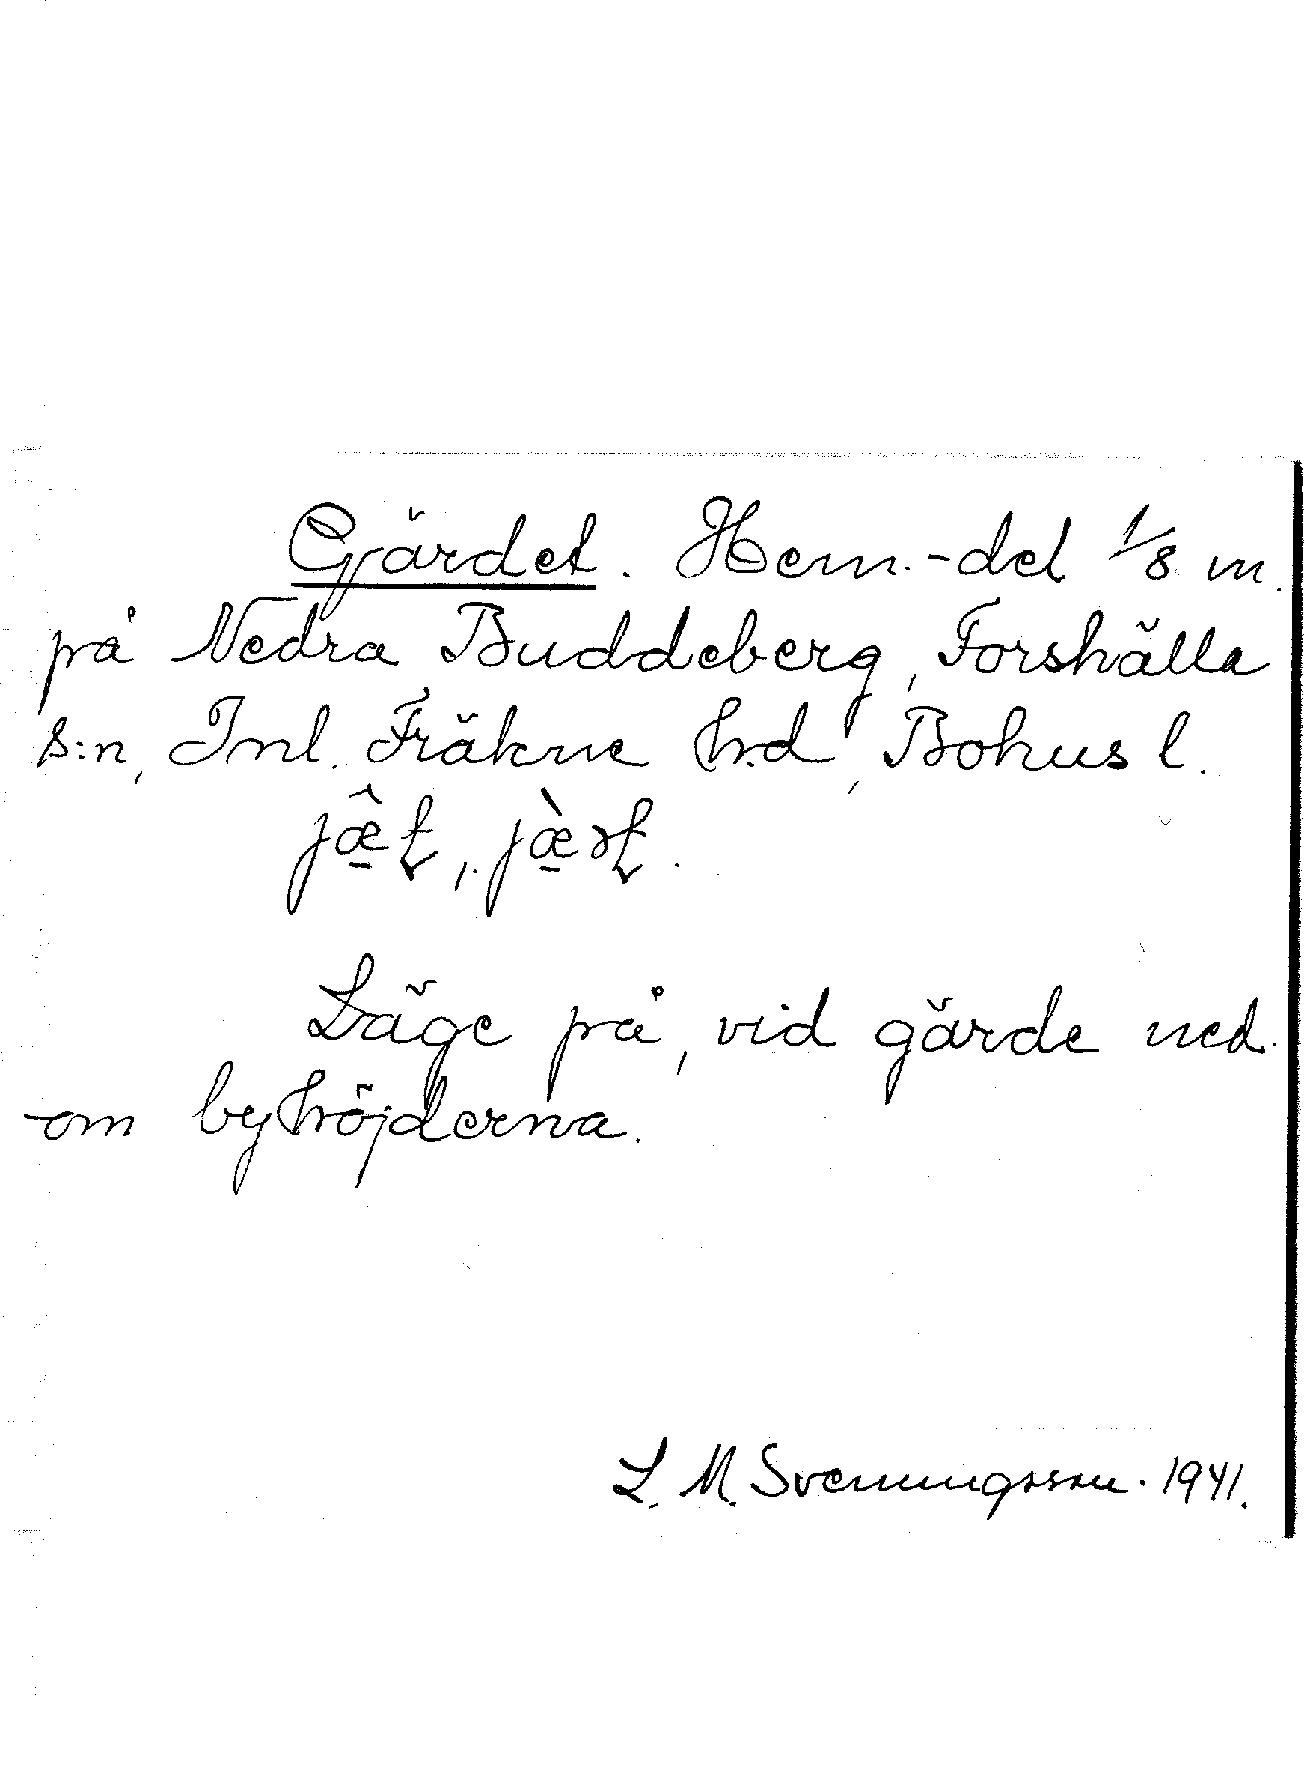 Gärdet. Hem.-del 1/8 m.
på Nedra Buddeberg, Forshälla
s:n, Inl. Fräkne hd, Bohus l.
jæ̠̂ʈ, jæ̠̀ɽʈ.
Läge på, vid gärde ned-
om byhöjderna.
L. M. Svenungsson. 1941.